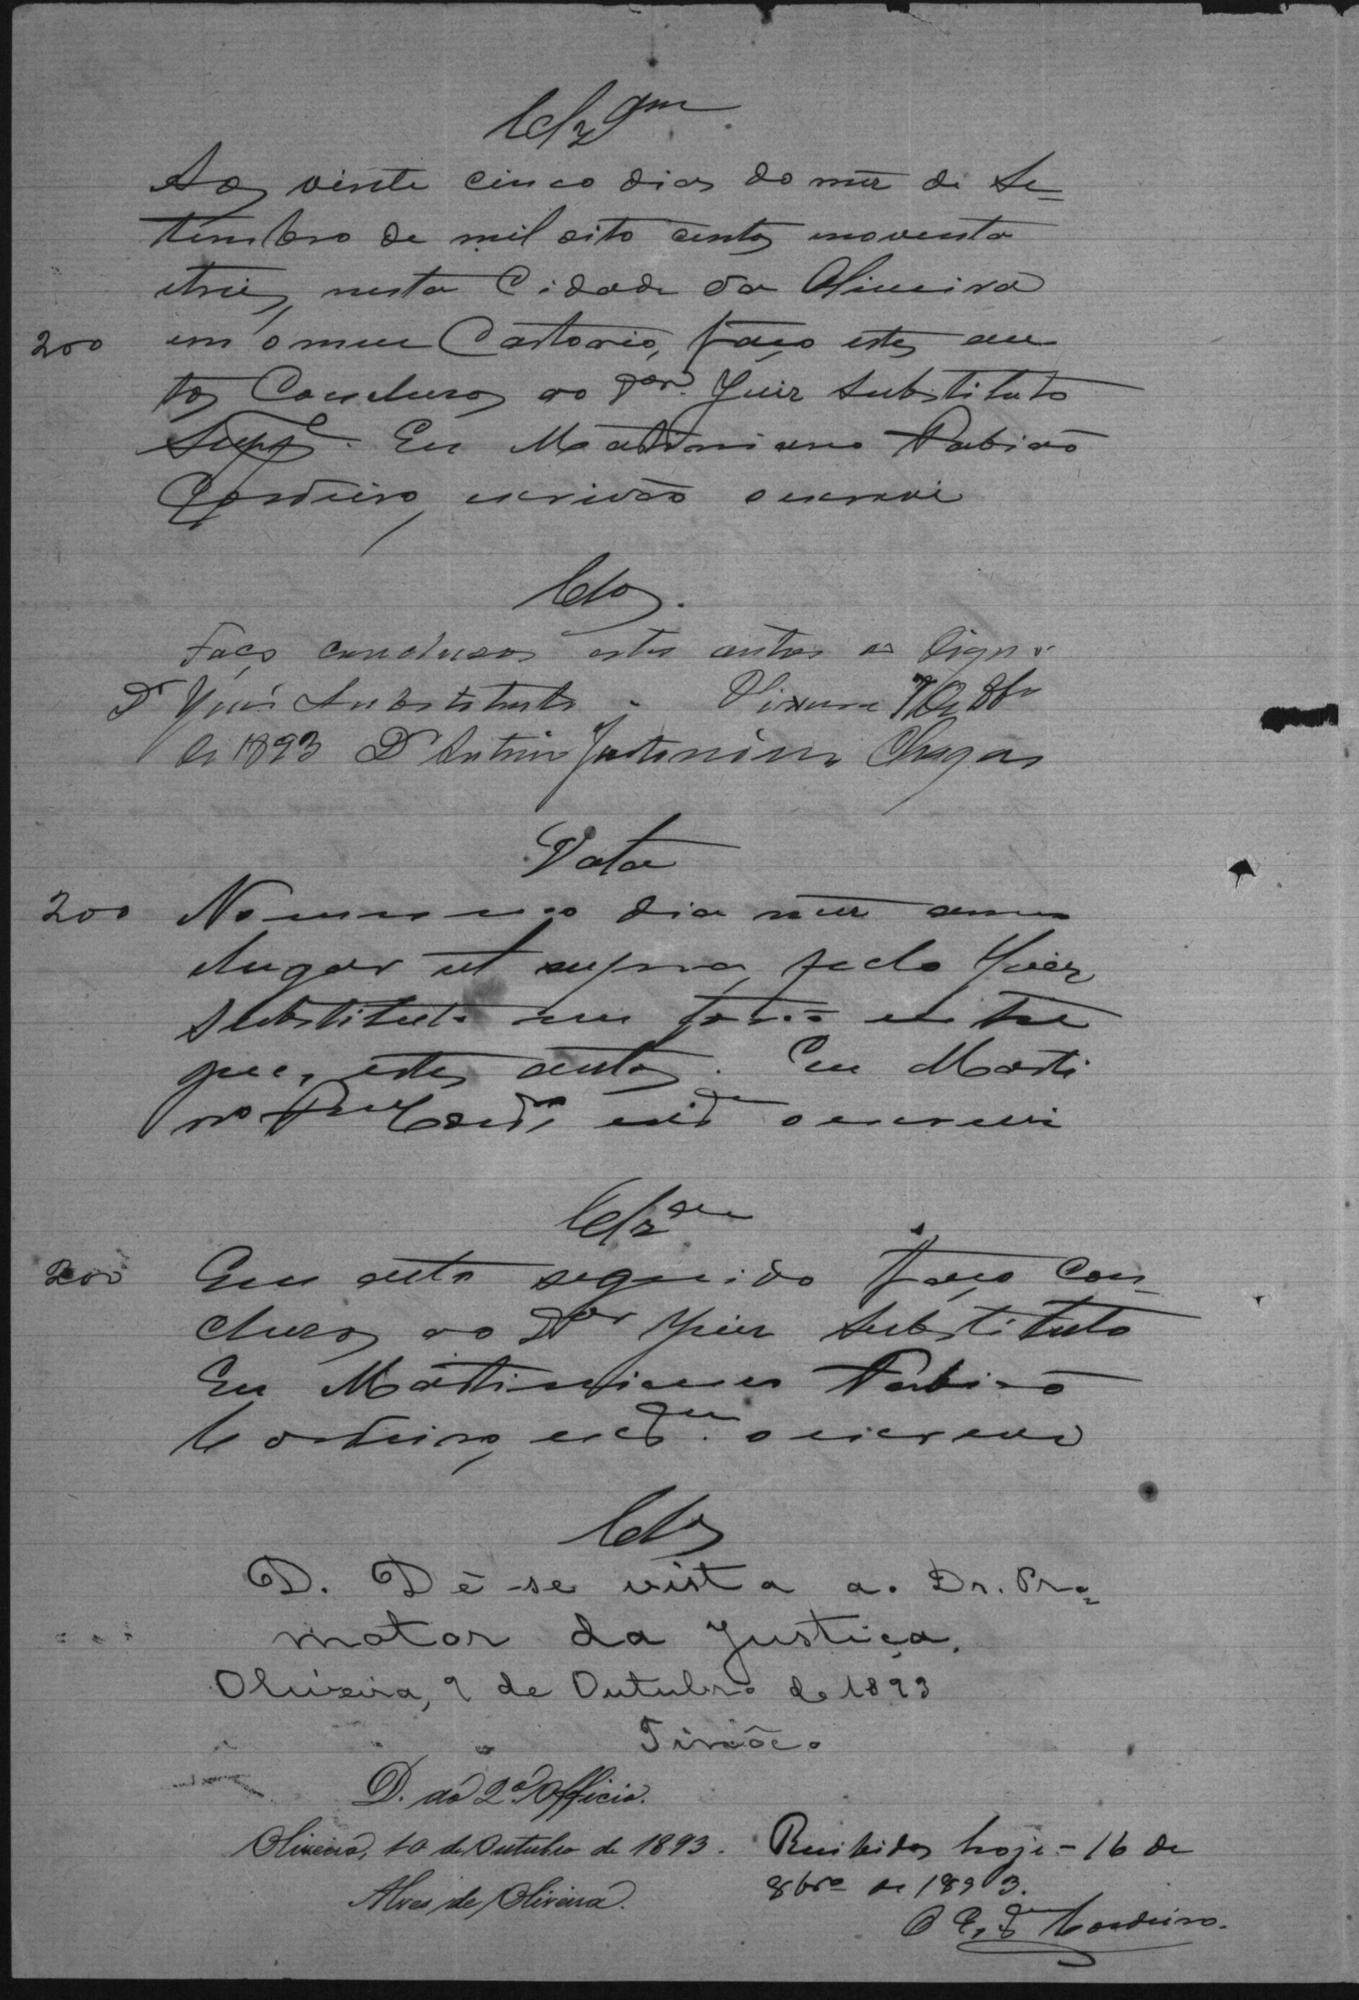 Clzam
Aos vinte cinco dias do mez de Se=
tembro de mil oito centos enoventa
etres, nesta Cidade da Oliveira
200 em o meu Cartorio, faço estes au
tos Conclusos ao Dor. Juiz Substituto
Suppe. Eu Martiniano Fabião
Cordeiro, escrivão o escrevi
Clos.
Faço conclusos estes autos ao Digno
Dr Juiz Substituto. Oliveira 7 de 8bro
de 1893 Dr Antonio Justiniano Chagas
Data
200 No mesmo dia mez anno
lugar ut supra, pelo Juiz
Substituto me forão entre
gues estes autos. Eu Marti
no Cordo escram o escrevi
Clzam
200 Em acto seguido faço con-
clusos ao Dor Juiz Substituto
Eu Martiniano Fabião
Cordeiro, escam. o escrevi
Clos
D. Dê-se vista ao Dr. Pro=
motor da Justiça.
Oliveira, 9 de Outubro de 1893
Tinôco
D. ao 2º Officio.
Oliveira, 10 de Outubro de 1893.
Alves de Oliveira.
Recibidos hoje - 16 de
8bro de 1893.
O Escam Cordeiro.